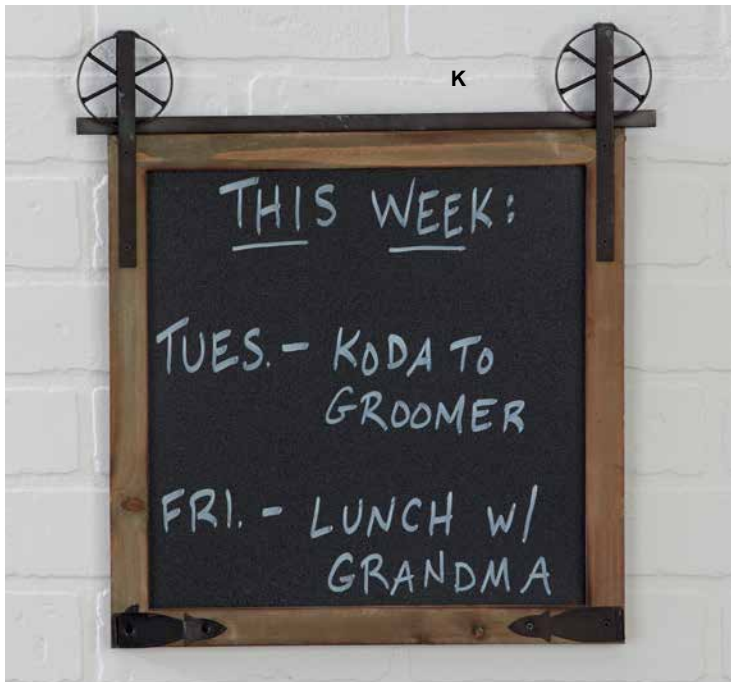 K
THIS WEEK:
TUES. - KODA TO
GROOMER
FRI. - LUNCH W/
GRANDMA